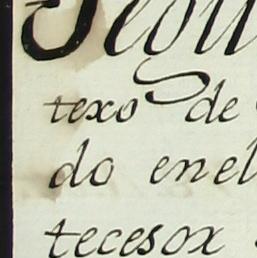 texo de
do enel
tecesox